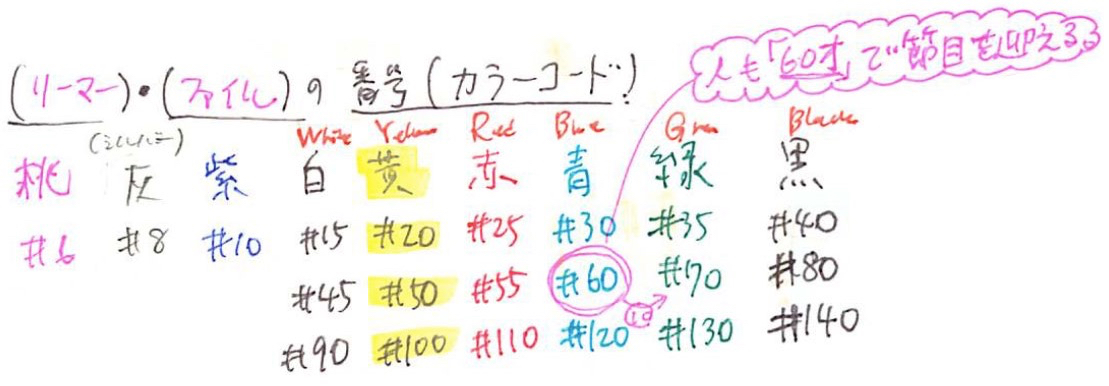 人も「60才」で節目を迎える
(リーマー)・(ファイル)の番号(カラーコード!)
(シルバー)
White Yellow Red Blue Green Black
桃 灰 紫 白 黄 赤 青 緑 黒
#6 #8 #10 #15 #20 #25 #30 #35 #40
#45 #50 #55 #60 #70 #80
10
#90 #100 #110 #120 #130 #140